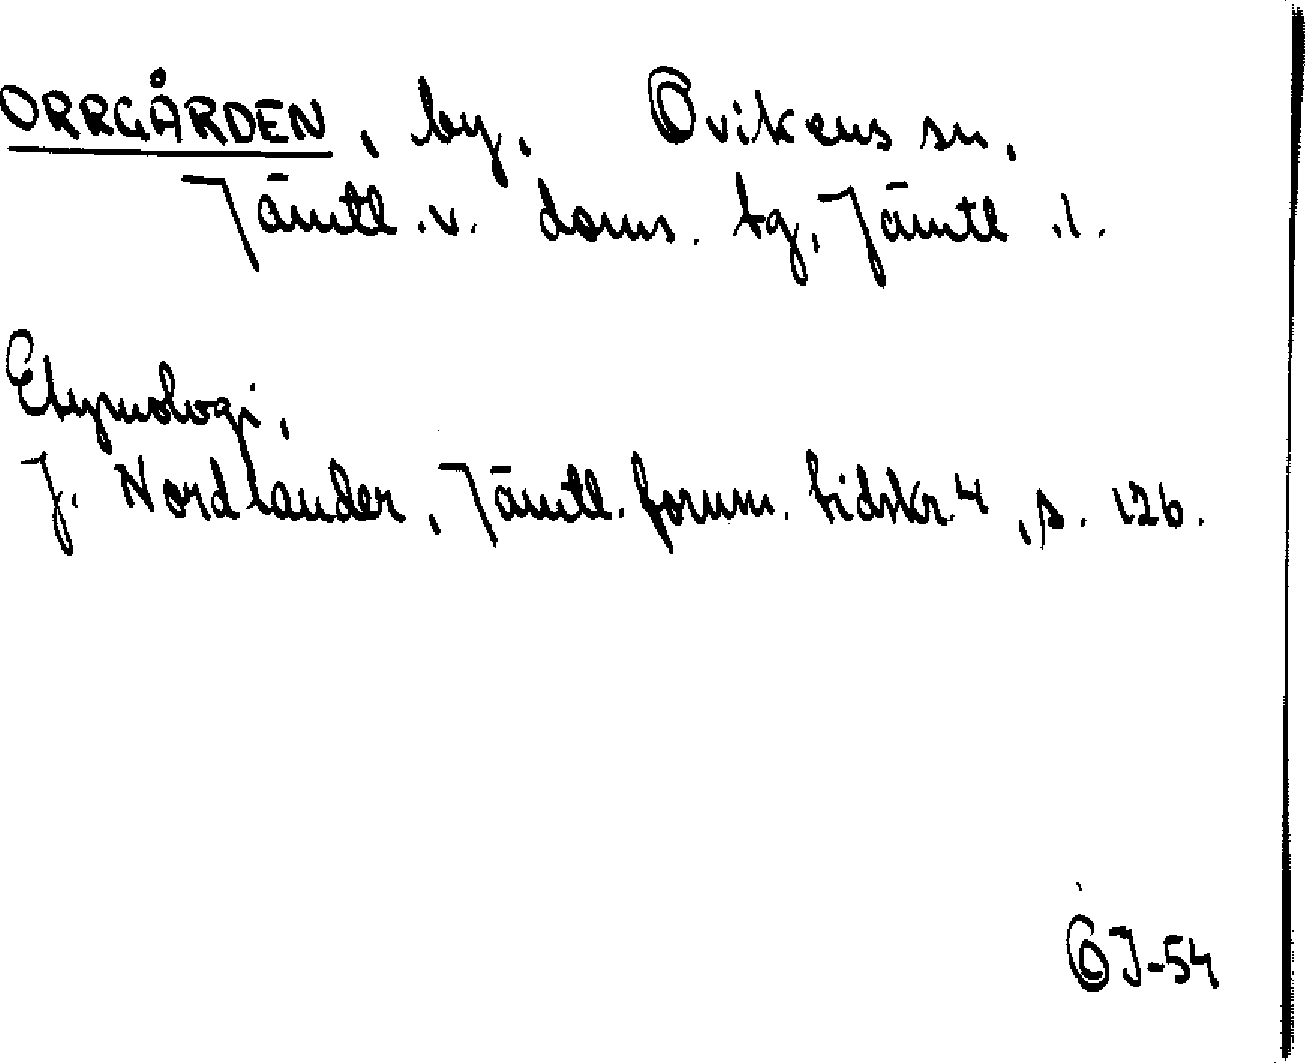 ORRGÅRDEN, by, Ovikens sn,
Jämtl. v. doms. tg, Jämtl. l.
Etymologi,
J. Nordlander, Jämtl. fornm. tidskr. 4, s. 126.
OJ-54